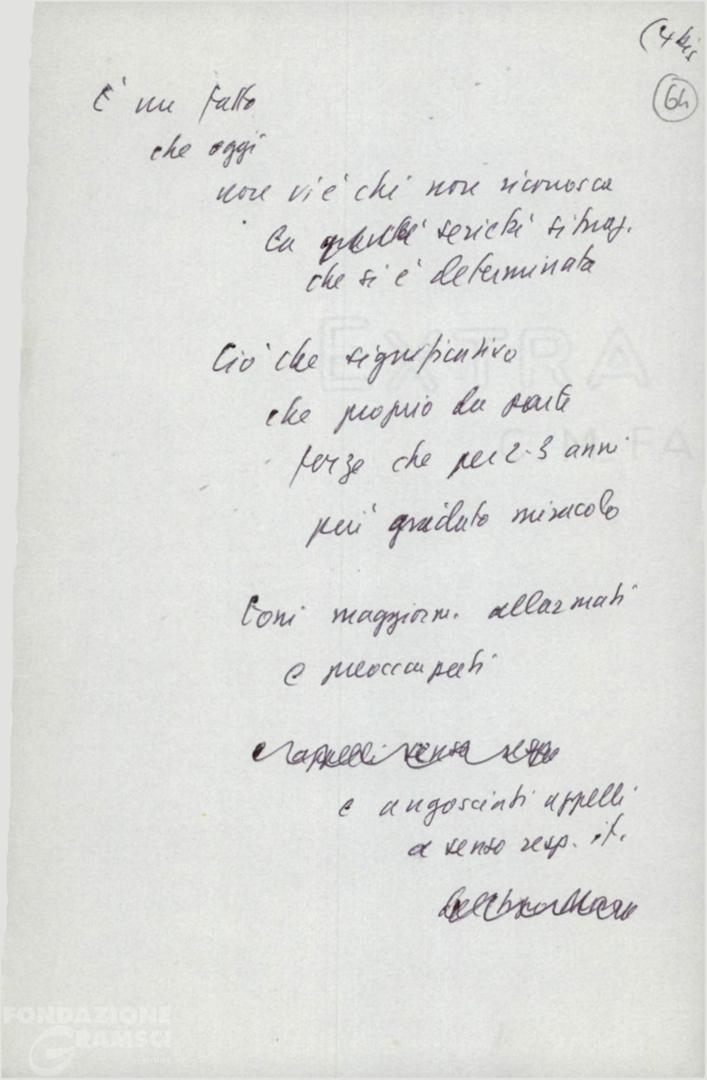 (4 bis
64
È un fatto
che oggi
non vi è chi non riconosca
la serietà situaz.
che si è determinata
Ciò che significativo
che proprio da parte
forze che per 2-3 anni
più gridato miracolo
toni maggiorm. allarmati
e preoccupati
e appelli senso
e angosciati appelli
a senso resp. it.
EXTRA
FONDAZIONE
GRAMSCI